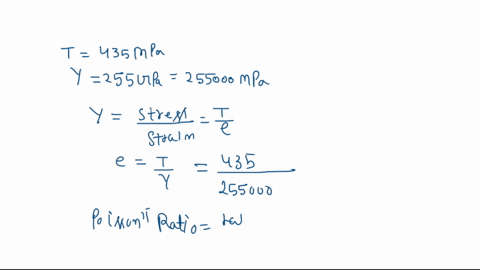 T = 435 MPa
Y = 255 GPa = 255000 MPa
Y = Stress / Strain = T / e
e = T / Y = 435 / 255000
Poisson's Ratio =